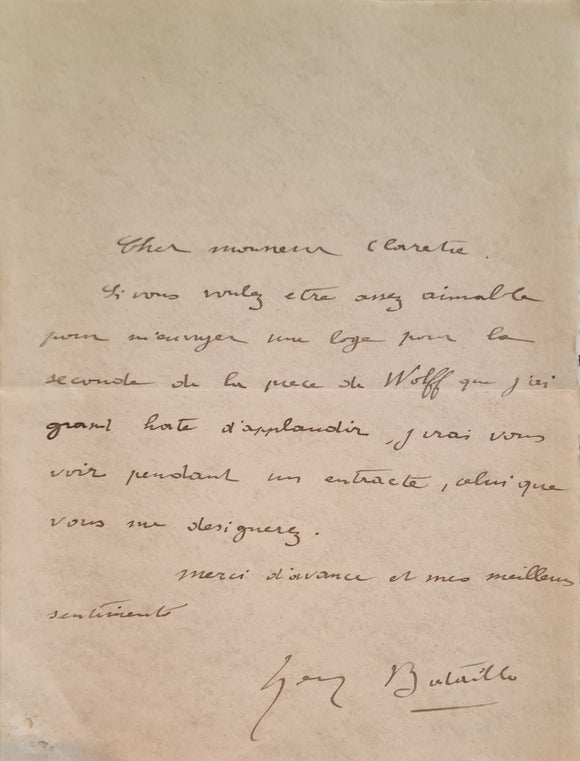 Cher monsieur Claretie.
Si vous voulez etre assez aimable
pour m'envoyer une loge pour la
seconde de la piece de Wolff que j'ai
grand hate d'applaudir, j'irai vous
voir pendant un entracte, celui que
vous me designerez.
Merci d'avance et mes meilleurs
sentiments
Henry Bataille